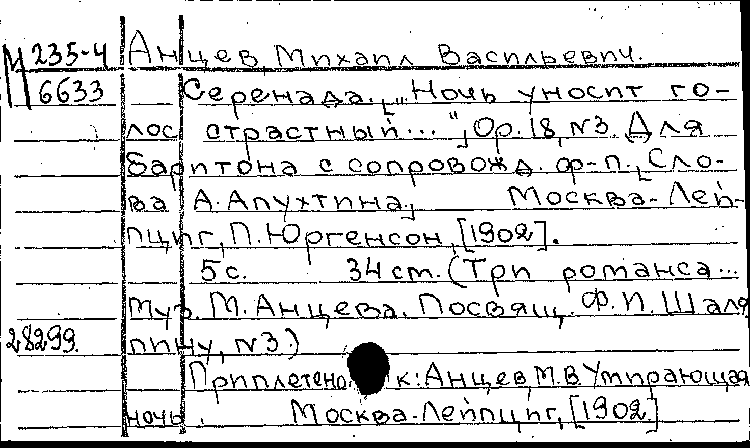 М 235-4 Анцев, Михаил Васильевич.
6633 Серенада. [„Ночь уносит го-
лос страстный...“], Op. 18, N3. Для
баритона с сопровожд. ф-п. [Сло-
ва А. Апухтина.] Москва-Лей-
пциг, П. Юргенсон, [1902].
5 с. 34 cm. (Три романса...
Муз. М. Анцева. Посвящ. Ф. И. Шаля
28299. пину, N3.)
Приплетено к: Анцев, М. В Умирающая
ночь. Москва-Лейпциг, [1902]